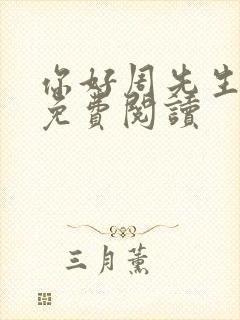 你好周先生
免費閱讀
三月薰